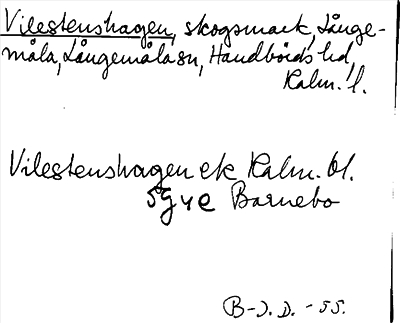 Vilestenshagen, skogsmark, Långe-
måla, Långemåla sn, Handbörds hd,
Kalm. l.
Vilestenshagen ek Kalm. bl.
5G4e Barnebo
B-J. D. - 55.